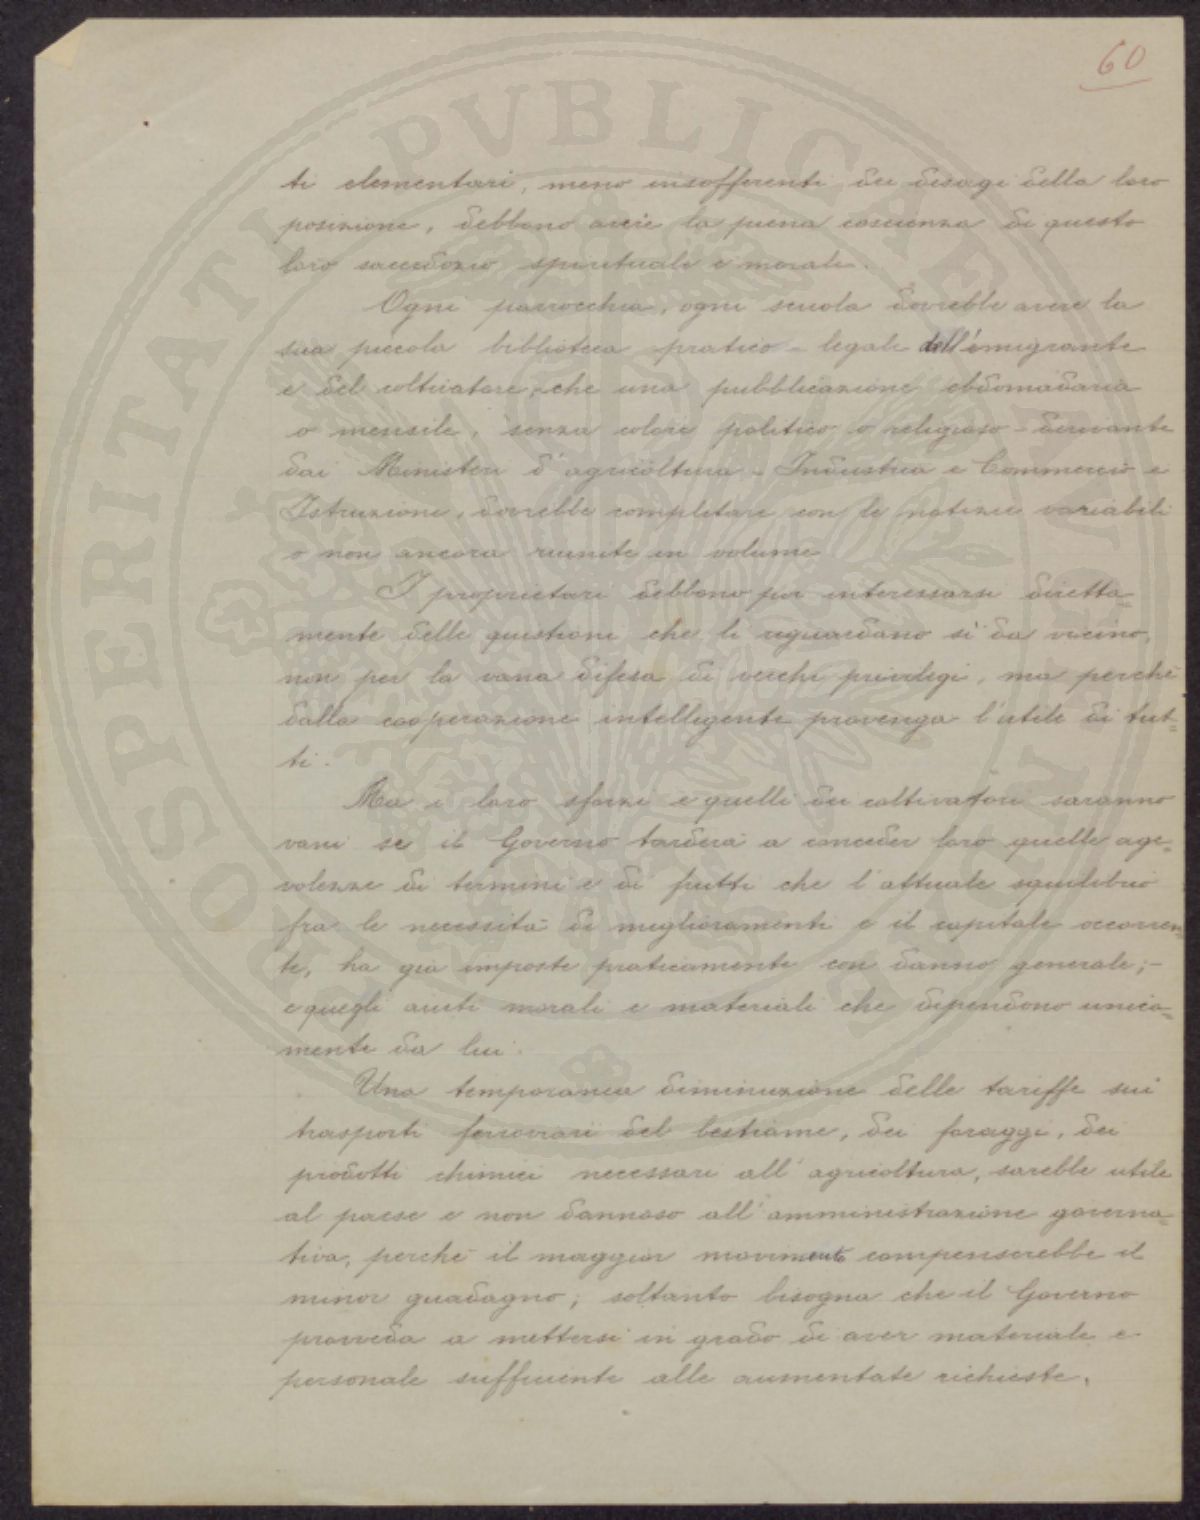 60
ti elementari, meno insofferenti dei disagi della loro
posizione, debbono avere la piena coscienza di questo
loro sacerdozio spirituale e morale.
Ogni parrocchia, ogni scuola dovrebbe avere la
sua piccola biblioteca pratico-legale dell'emigrante
e del coltivatore, che una pubblicazione ebdomadaria
o mensile, senza colore politico o religioso - derivante
dai Ministeri d'agricoltura - Industria e Commercio e
Istruzione, dovrebbe completare con le notizie variabili
o non ancora riunite in volume
I proprietari debbono poi interessarsi diretta=
mente delle questioni che li riguardano sì da vicino,
non per la vana difesa di vecchi privilegi, ma perchè
dalla cooperazione intelligente provenga l'utile di tut=
ti.
Ma i loro sforzi e quelli dei coltivatori saranno
vani se il Governo tarderà a conceder loro quelle age=
volezze di termini e di frutti che l'attuale squilibrio
fra le necessità di miglioramenti e il capitale occorren=
te, ha già imposte praticamente con danno generale; -
e quegli aiuti morali e materiali che dipendono unica=
mente da lui.
Una temporanea diminuzione delle tariffe sui
trasporti ferroviari del bestiame, dei foraggi, dei
prodotti chimici necessari all'agricoltura, sarebbe utile
al paese e non dannoso all'amministrazione governa=
tiva, perchè il maggior movimento compenserebbe il
minor guadagno; soltanto bisogna che il Governo
provveda a mettersi in grado di aver materiale e
personale sufficiente alle aumentate richieste.
PROSPERITATI PVBLICAE VINDICANDAE